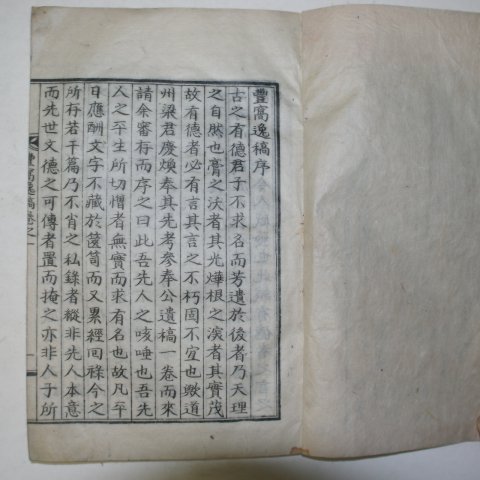 豐窩逸稿序
古之有德君子不求名而芳遺於後者乃天理
之自然也膏之沃者其光燁根之演者其實茂
故有德者必有言其言之不朽固不宜也歟道
州梁君慶煥奉其先考參奉公遺稿一卷而來
請余審存而序之曰此吾先人之咳唾也吾先
人之平生所切懼者無實而求有名也故凡平
日應酬文字不藏於篋笥而又累經回祿今之
所存若干篇乃不肖之私錄者縱非先人本意
而先世文德之可傳者置而掩之亦非人子所
豐窩逸稿卷之一
一